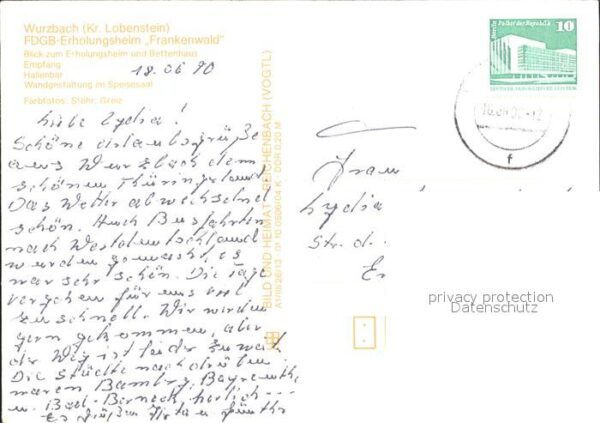 Wurzbach (Kr. Lobenstein)
FDGB-Erholungsheim „Frankenwald"
Blick zum Erholungsheim und Bettenhaus
Empfang
Hallenbar
Wandgestaltung im Speisesaal
Farbfotos: Stöhr, Greiz
18.06 90
Liebe Lydia!
Schöne Urlaubsgrüße
aus Wurzbach dem
schönen Thüringerland
Das Wetter abwechselnd
schön. Auch Busfahrten
nach Westdeutschland
wurden gemacht, es
war sehr schön. Die Tage
vergehen für uns viel
zu schnell. Wir würden
gern gekommen, aber
der Weg ist leider zu weit
Die Städte nach drüben
waren Bamberg, Bayreuth,
u. Bad-Berneck herlich ---
Es grüßen Günther
BILD UND HEIMAT REICHENBACH (VOGTL)
A1/08/26/13 01 10 0506/04 K DDR 0,20 M
Berlin, Palast der Republik
10
DEUTSCHE DEMOKRATISCHE REPUBLIK
f
Frau
Lydia
Str. d.
privacy protection
Datenschutz